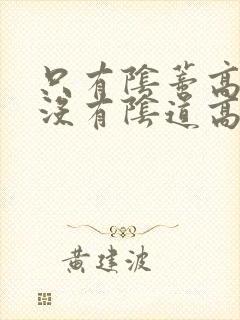 只有陰蒂高
沒有陰道高
黃建波